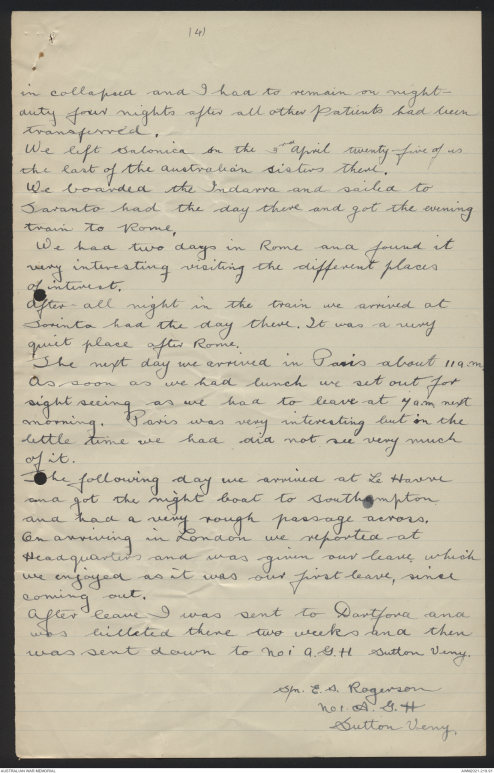 (4)
in collapsed and I had to remain on night-
duty four nights after all other Patients had been
transferred.
We left Salonica on the April twenty-five of us
the last of the australian sisters there.
We boarded the Indarra and sailed to
Taranto had the day there and got the evening
train to Rome.
We had two days in Rome and found it
very interesting visiting the different places
of interest.
After all night in the train we arrived at
had the day there. It was a very
quiet place after Rome.
The next day we arrived in Paris about 11 a.m.
As soon as we had lunch we set out for
sight seeing as we had to leave at 7 a.m next
morning. Paris was very interesting but in the
little time we had did not see very much
of it.
The following day we arrived at Le Havre
and got the night boat to Southampton
and had a very rough passage across.
On arriving in London we reported at
Headquarters and was given our leave, which
we enjoyed as it was our first leave, since
coming out.
After leave I was sent to Dartford and
was billeted there two weeks and then
was sent down to No 1 A.G.H Sutton Veny.
E. S. Rogerson
No 1. A. G. H
Sutton Veny.
AUSTRALIAN WAR MEMORIAL